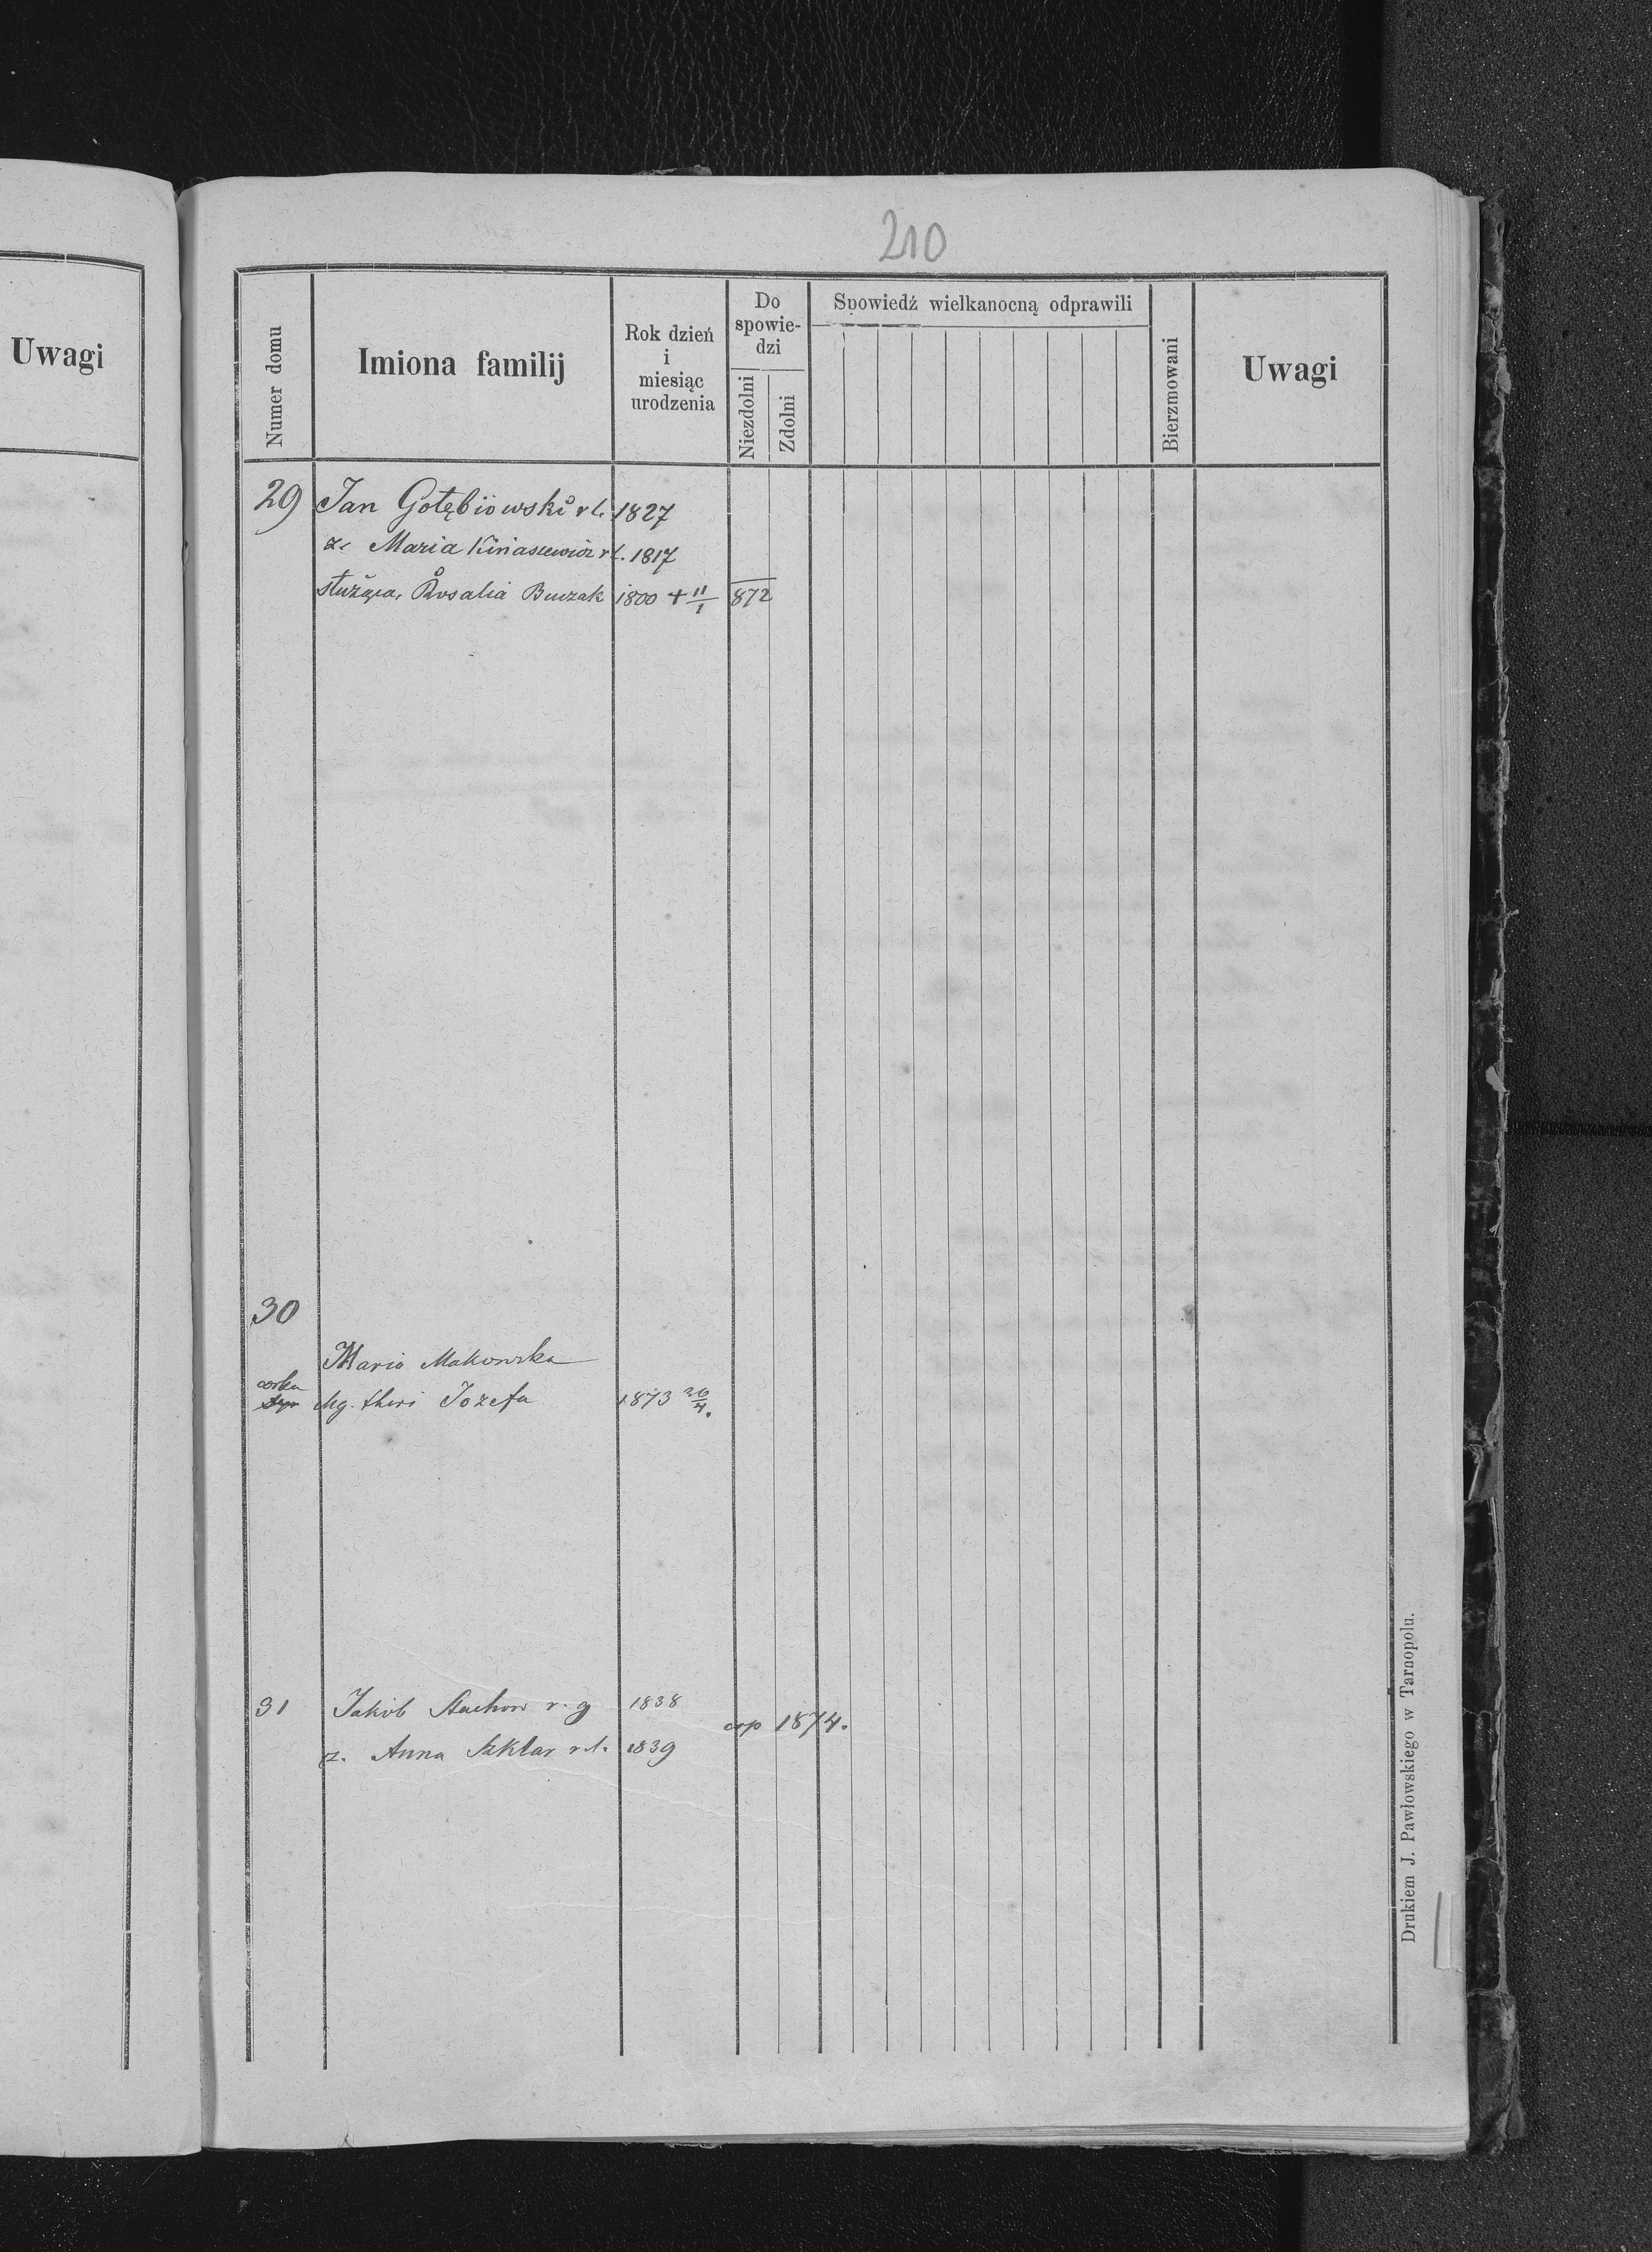 210
Uwagi
Numer domu
Imiona familij
Rok dzień
i
miesiąc
urodzenia
Do
spowie-
dzi
Niezdolni
Zdolni
Spowiedź wielkanocną odprawili
Bierzmowani
Uwagi
29 Jan Gołębiowski r l. 1827
ż. Maria r ł. 1817
służąca, Rosalia 1800 + 11/1 872
30
Maria Makowska
corka Jozefa 1873 30/4.
31 Jakób r. g 1838
cop 1874.
ż. Anna Szklar r. l. 1839
Drukiem J. Pawłowskiego w Tarnopolu.